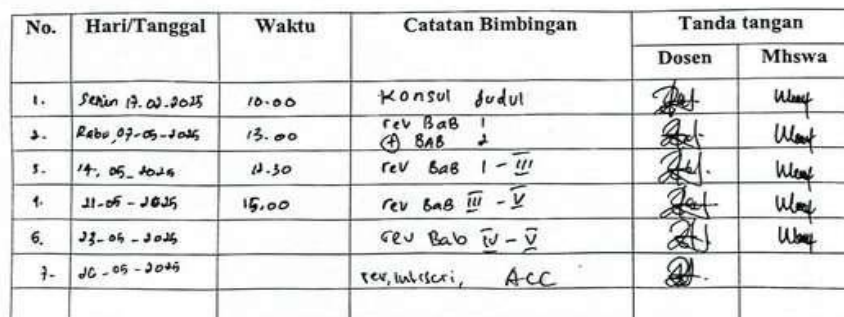 No. Hari/Tanggal Waktu Catatan Bimbingan Tanda tangan
Dosen Mhswa
1. Senin 17.02.2025 10.00 Konsul Judul
2. Rabu, 07-05-2025 13.00 rev BaB 1
+ BAB 2
3. 14, 05_2025 12.30 rev BaB I - III
4. 21-05-2025 15.00 rev BaB III - V
6. 23-05-2025 rev Bab IV - V
7- 26-05-2025 rev, ACC